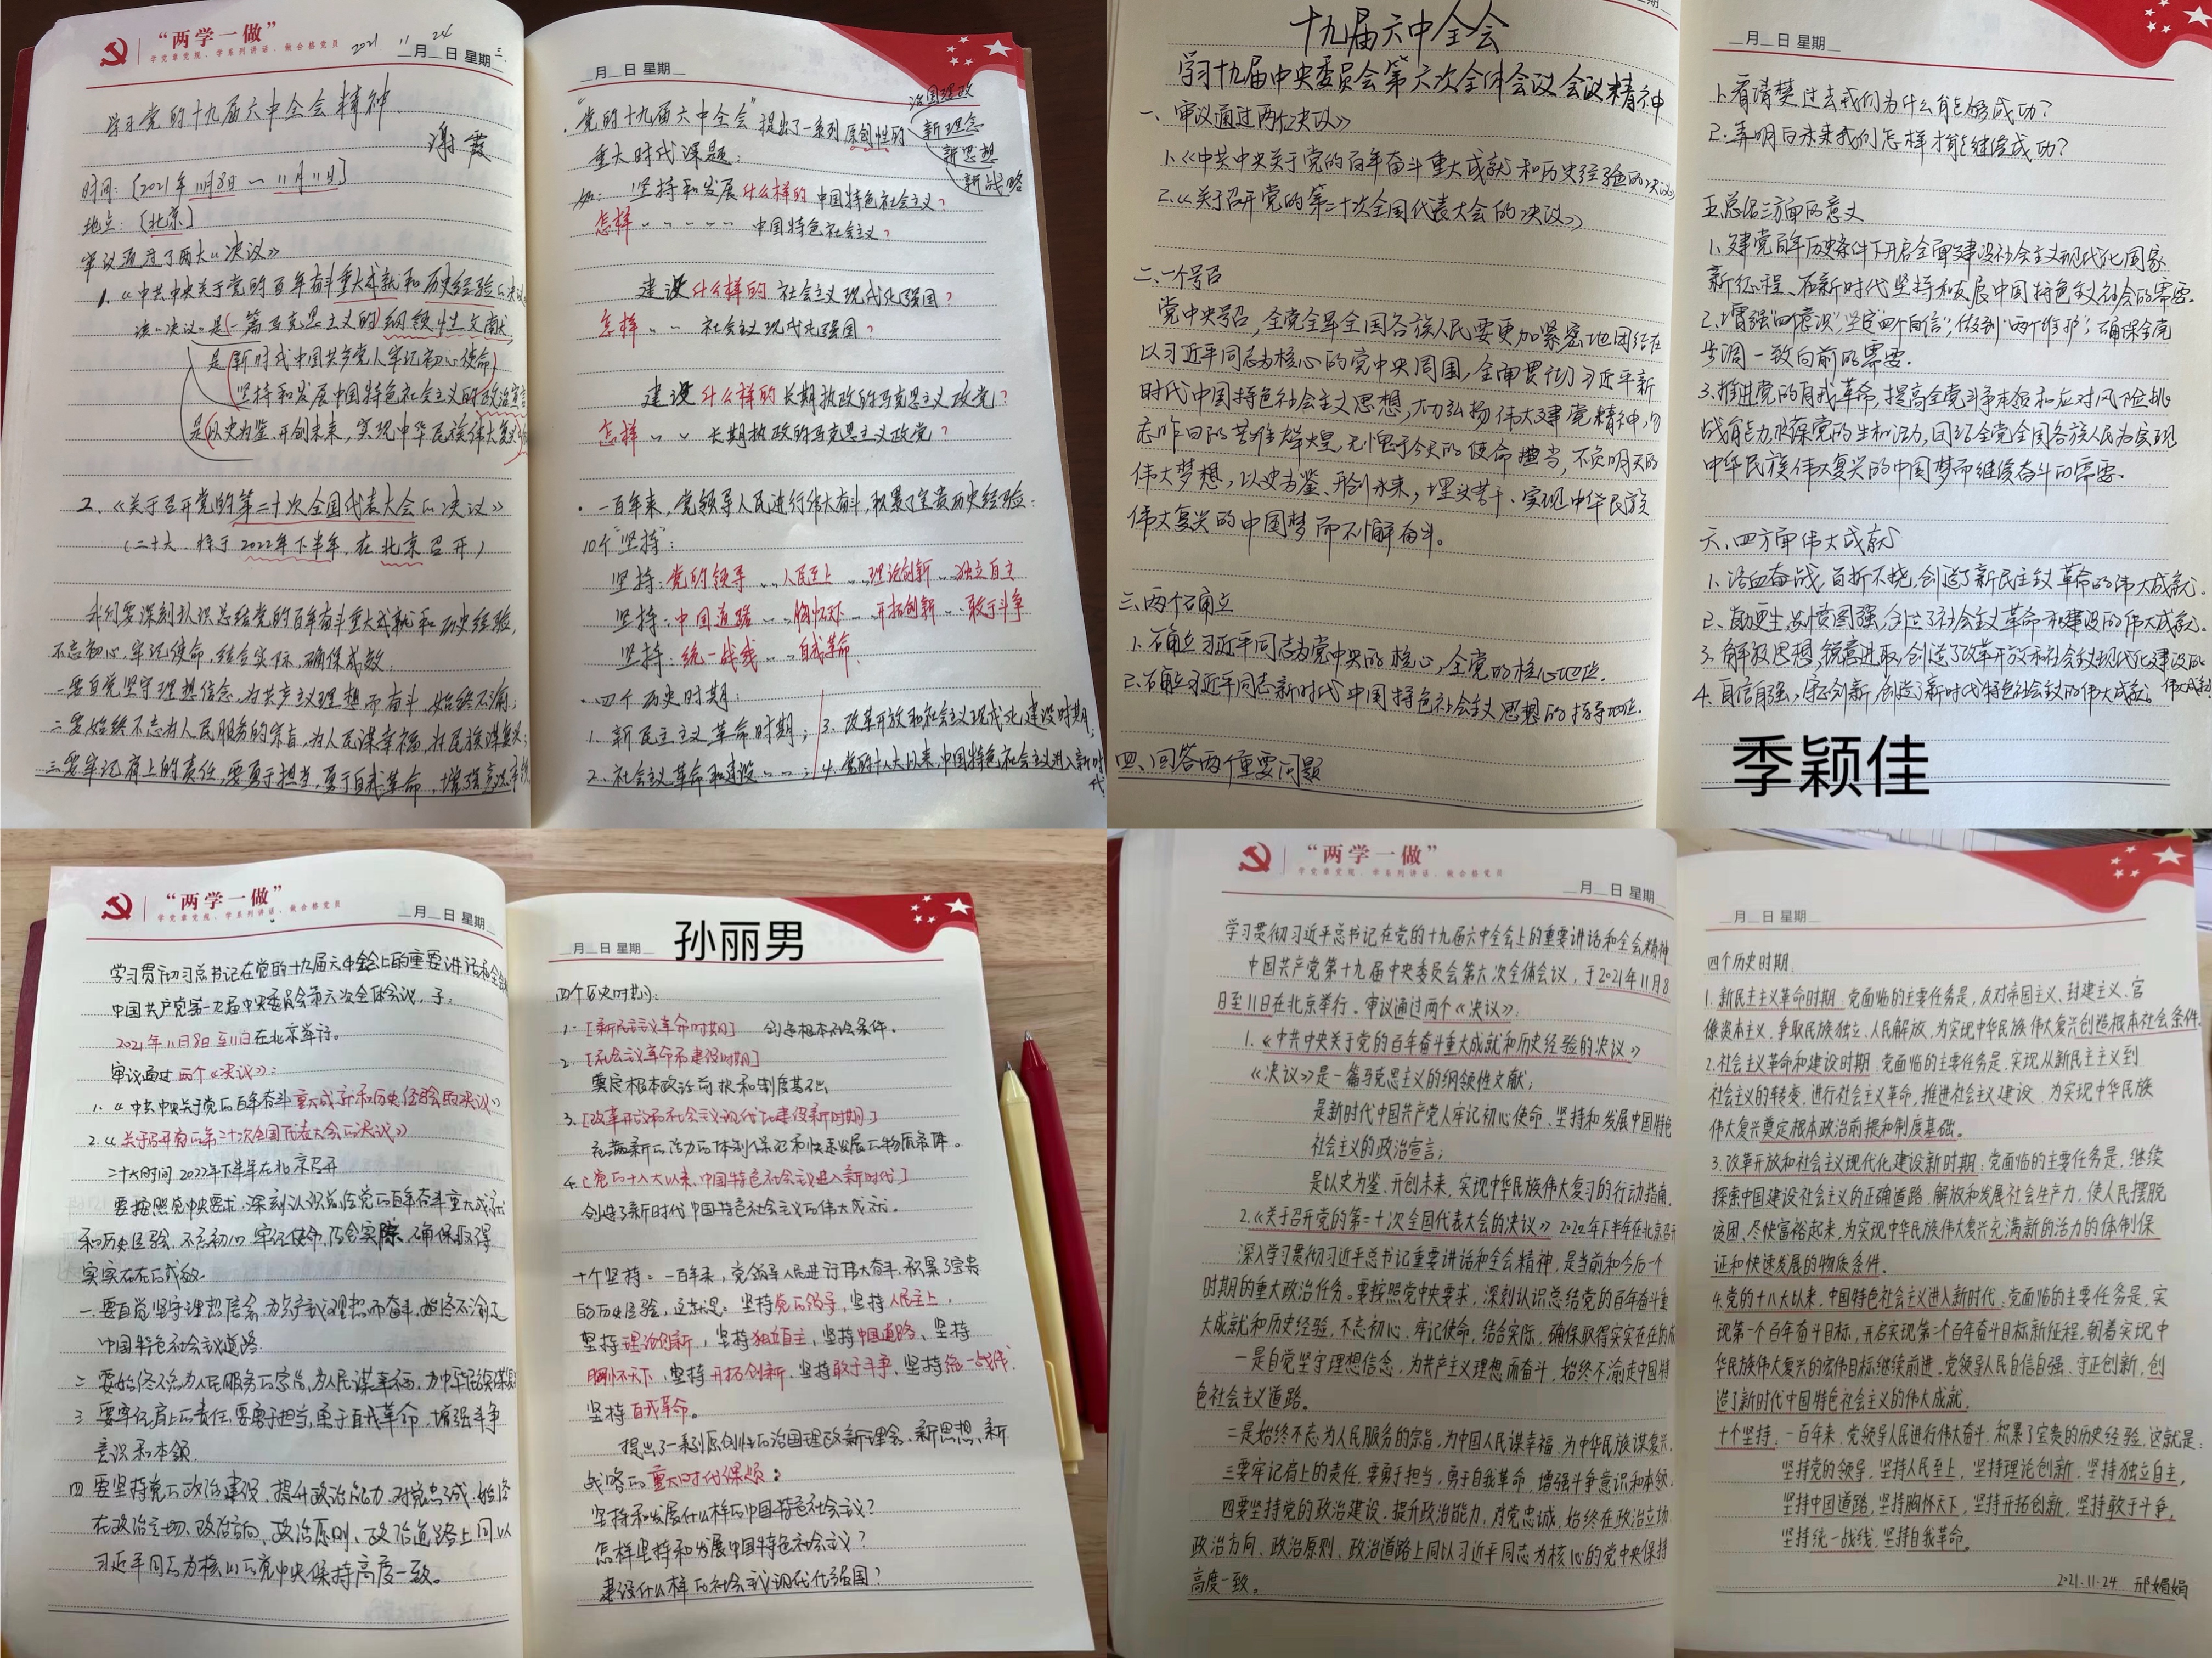 “两学一做”
学党章党规、学系列讲话、做合格党员
2021 11 24
月 日 星期三
学习党的十九届六中全会精神
谢霞
时间：[2021年11月8日—11月11日]
地点：[北京]
审议通过了两大《决议》
1.《中共中央关于党的百年奋斗重大成就和历史经验的决议
该《决议》是(一篇马克思主义的)纲领性文献
是(新时代中国共产党人牢记初心使命)
坚持和发展中国特色社会主义的政治宣言
是(以史为鉴、开创未来，实现中华民族伟大复兴
2.《关于召开党的第二十次全国代表大会的决议》
(二十大 将于2022年下半年，在北京召开)
我们要深刻认识总结党的百年奋斗重大成就和历史经验，
不忘初心，牢记使命，结合实际，确保成效．
一要自觉坚守理想信念，为共产主义理想而奋斗 始终不渝；
二要始终不忘为人民服务的宗旨，为人民谋幸福，为民族谋复兴；
三要牢记肩上的责任，要勇于担当，勇于自我革命，增强意识
月 日 星期
·“党的十九届六中全会”提出了一系列原创性的
治国理政
新理念
新思想
新战略
重大时代课题：
如：坚持和发展什么样的中国特色社会主义？
怎样 〃 〃 - - - 中国特色社会主义？
建设什么样的社会主义现代化强国？
怎样 〃 〃 社会主义现代化强国？
建设什么样的长期执政的马克思主义政党？
怎样 〃 〃 长期执政的马克思主义政党？
·一百年来，党领导人民进行伟大奋斗，积累了宝贵历史经验：
10个“坚持”：
坚持：党的领导 … 人民至上 … 理论创新 … 独立自主
坚持：中国道路 … 胸怀天下 … 开拓创新 … 敢于斗争
坚持：统一战线 … 自我革命
·四个历史时期：
1. 新民主主义革命时期；
2. 社会主义革命和建设 〃 〃；
3. 改革开放和社会主义现代化建设时期；
4. 党的十八大以来，中国特色社会主义进入新时代
十九届六中全会
学习十九届中央委员会第六次全体会议会议精神
一、审议通过两个《决议》
1.《中共中央关于党的百年奋斗重大成就和历史经验的决议》
2.《关于召开党的第二十次全国代表大会的决议》
二、一个号召
党中央号召，全党全军全国各族人民要更加紧密地团结在
以习近平同志为核心的党中央周围，全面贯彻习近平新
时代中国特色社会主义思想，大力弘扬伟大建党精神，勿
忘昨日的苦难辉煌，无愧于今天的使命担当，不负明天的
伟大梦想，以史为鉴、开创未来，埋头苦干、实现中华民族
伟大复兴的中国梦而不懈奋斗。
三、两个确立
1. 确立习近平同志为党中央的核心，全党的核心地位．
2. 确立习近平同志新时代中国特色社会主义思想的指导地位．
四、回答两个重要问题
月 日 星期
1. 看清楚过去我们为什么能够成功？
2. 弄明白未来我们怎样才能继续成功？
五、总结三方面的意义
1. 建党百年历史条件下开启全面建设社会主义现代化国家
新征程、在新时代坚持和发展中国特色主义社会的需要．
2. 增强“四个意识”，坚定“四个自信”，做到“两个维护”；确保全党
步调一致向前的需要．
3. 推进党的自我革命，提高全党斗争本领和应对风险挑
战能力，永葆党的生机活力，团结全党全国各族人民为实现
中华民族伟大复兴的中国梦而继续奋斗的需要．
六、四方面伟大成就
1. 浴血奋战、百折不挠，创造了新民主主义革命的伟大成就．
2. 自力更生、发愤图强，创立了社会主义革命和建设的伟大成就．
3. 解放思想，锐意进取，创造了改革开放和社会主义现代化建设的伟大成就
4. 自信自强，守正创新，创造了新时代特色社会主义的伟大成就．
季颖佳
“两学一做”
学党章党规、学系列讲话、做合格党员
月 日 星期
学习贯彻习总书记在党的十九届六中全会上的重要讲话和全会
中国共产党第十九届中央委员会第六次全体会议，于：
2021年11月8日至11日在北京举行。
审议通过两个《决议》：
1.《中共中央关于党的百年奋斗重大成就和历史经验的决议》
2.《关于召开党的第二十次全国代表大会的决议》
二十大时间2022年下半年在北京召开
要按照党中央要求，深刻认识总结党的百年奋斗重大成就
和历史经验，不忘初心，牢记使命，结合实际，确保取得
实实在在的成效．
一.要自觉坚守理想信念，为共产主义理想而奋斗，始终不渝走
中国特色社会主义道路．
二 要始终不忘为人民服务的宗旨，为人民谋幸福，为中华民族谋复
三 要牢记肩上的责任，要勇于担当，勇于自我革命，增强斗争
意识和本领．
四 要坚持党的政治建设，提升政治能力，对党忠诚，始终
在政治立场、政治方向、政治原则、政治道路上同以
习近平同志为核心的党中央保持高度一致。
月 日 星期
孙丽男
四个历史时期：
1. [新民主主义革命时期] 创造根本社会条件．
2. [社会主义革命和建设时期]
奠定根本政治前提和制度基础
3. [改革开放和社会主义现代化建设新时期]
充满新的活力的体制保证和快速发展的物质条件。
4. [党的十八大以来，中国特色社会主义进入新时代]
创造了新时代中国特色社会主义的伟大成就．
十个坚持：一百年来，党领导人民进行伟大奋斗，积累了宝贵
的历史经验，这就是：坚持党的领导，坚持人民至上，
坚持理论创新，坚持独立自主，坚持中国道路、坚持
胸怀天下，坚持开拓创新，坚持敢于斗争，坚持统一战线．
坚持自我革命。
提出了一系列原创性的治国理政新理念、新思想、新
战略的重大时代课题：
坚持和发展什么样的中国特色社会主义？
怎样坚持和发展中国特色社会主义？
建设什么样的社会主义现代化强国？
“两学一做”
学党章党规、学系列讲话、做合格党员
月 日 星期
学习贯彻习近平总书记在党的十九届六中全会上的重要讲话和全会精神
中国共产党第十九届中央委员会第六次全体会议，于2021年11月8
日至11日在北京举行。审议通过两个《决议》：
1.《中共中央关于党的百年奋斗重大成就和历史经验的决议》
《决议》是一篇马克思主义的纲领性文献；
是新时代中国共产党人牢记初心使命、坚持和发展中国特色
社会主义的政治宣言；
是以史为鉴、开创未来，实现中华民族伟大复习的行动指南．
2.《关于召开党的第二十次全国代表大会的决议》2022年下半年在北京召开
深入学习贯彻习近平总书记重要讲话和全会精神，是当前和今后一个
时期的重大政治任务。要按照党中央要求，深刻认识总结党的百年奋斗重
大成就和历史经验，不忘初心，牢记使命，结合实际，确保取得实实在在的成
一是自觉坚守理想信念，为共产主义理想而奋斗，始终不渝走中国特
色社会主义道路。
二是始终不忘为人民服务的宗旨，为中国人民谋幸福，为中华民族谋复兴．
三要牢记肩上的责任，要勇于担当，勇于自我革命，增强斗争意识和本领．
四要坚持党的政治建设，提升政治能力，对党忠诚，始终在政治立场、
政治方向、政治原则、政治道路上同以习近平同志为核心的党中央保持
高度一致。
月 日 星期
四个历史时期．
1. 新民主主义革命时期：党面临的主要任务是，反对帝国主义、封建主义、官
僚资本主义，争取民族独立、人民解放，为实现中华民族伟大复兴创造根本社会条件．
2. 社会主义革命和建设时期：党面临的主要任务是，实现从新民主主义到
社会主义的转变，进行社会主义革命，推进社会主义建设，为实现中华民族
伟大复兴奠定根本政治前提和制度基础。
3. 改革开放和社会主义现代化建设新时期：党面临的主要任务是，继续
探索中国建设社会主义的正确道路，解放和发展社会生产力，使人民摆脱
贫困、尽快富裕起来，为实现中华民族伟大复兴充满新的活力的体制保
证和快速发展的物质条件．
4. 党的十八大以来，中国特色社会主义进入新时代：党面临的主要任务是，实
现第一个百年奋斗目标，开启实现第二个百年奋斗目标新征程，朝着实现中
华民族伟大复兴的宏伟目标继续前进。党领导人民自信自强、守正创新，创
造了新时代中国特色社会主义的伟大成就．
十个坚持：一百年来，党领导人民进行伟大奋斗，积累了宝贵的历史经验，这就是：
坚持党的领导，坚持人民至上，坚持理论创新，坚持独立自主，
坚持中国道路，坚持胸怀天下，坚持开拓创新，坚持敢于斗争，
坚持统一战线，坚持自我革命。
2021.11.24 邢媚娟